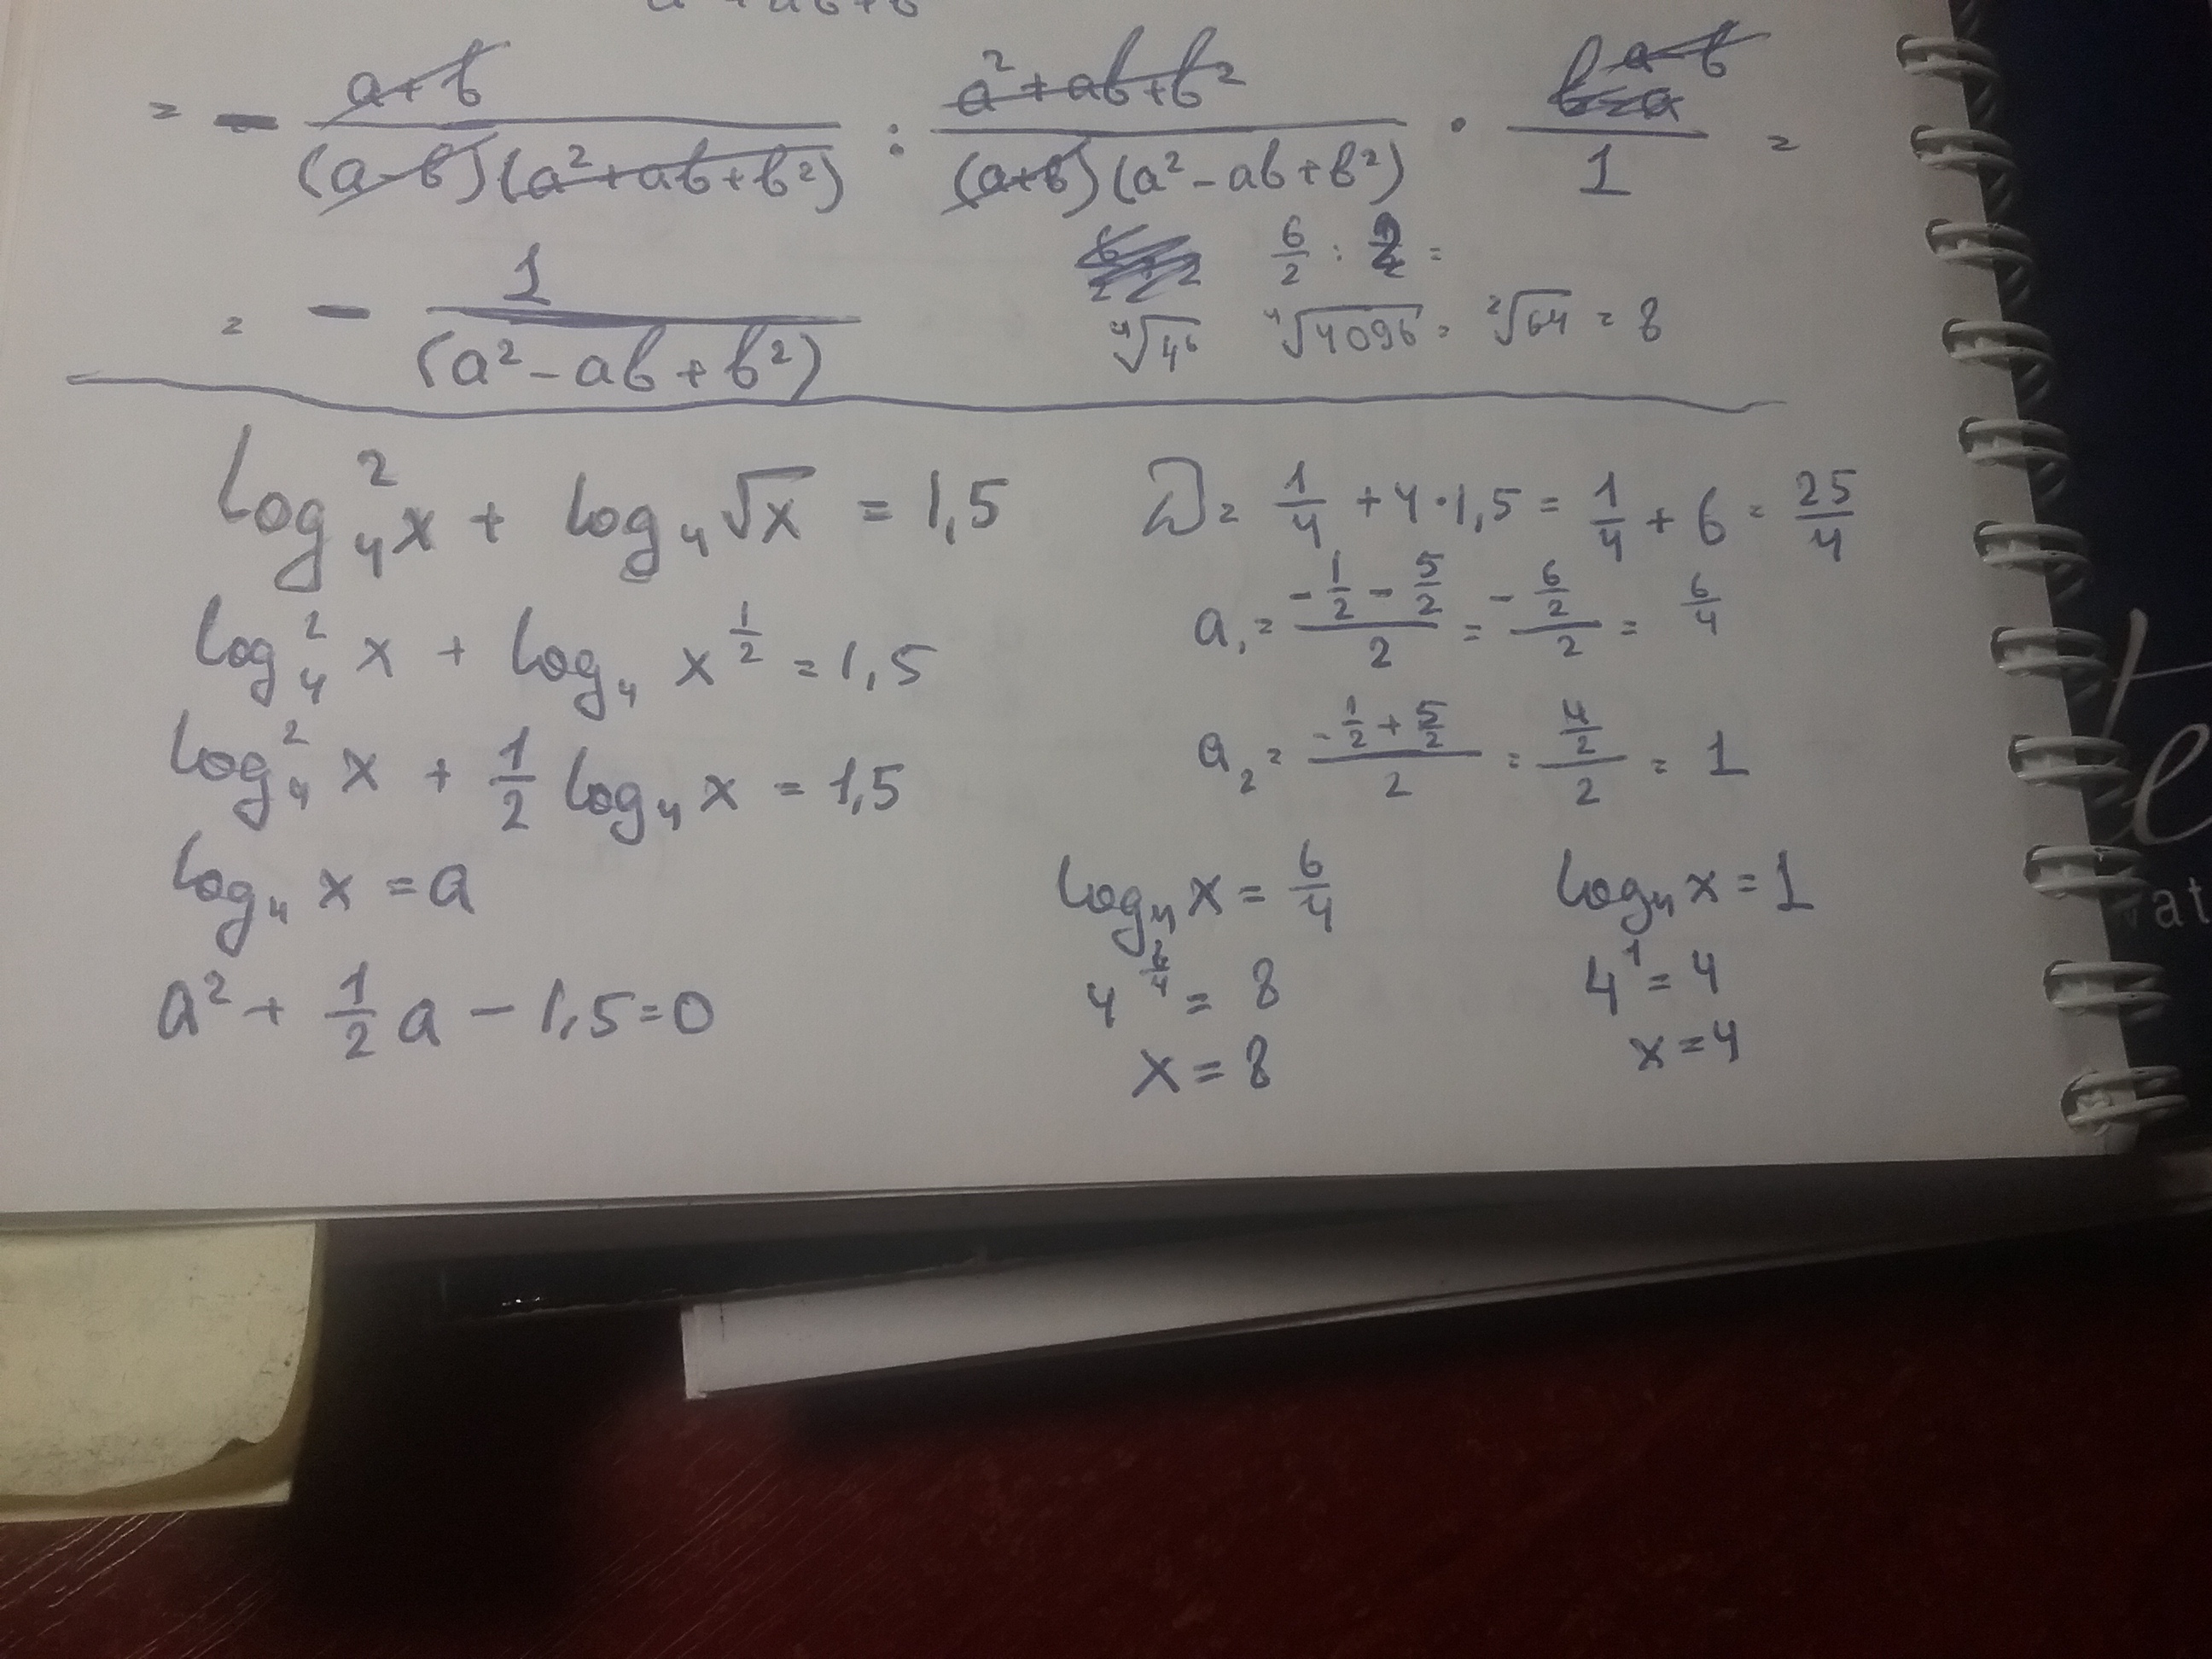 = - a+b / (a-b)(a²+ab+b²) : a²+ab+b² / (a+b)(a²-ab+b²) · a-b / 1 =
= - 1 / (a²-ab+b²)
6/2 : 2 =
⁴√4⁶ ⁴√4096 = ²√64 = 8
log₄²x + log₄√x = 1,5
log₄²x + log₄ x^(1/2) = 1,5
log₄²x + 1/2 log₄ x = 1,5
log₄ x = a
a² + 1/2 a - 1,5 = 0
D = 1/4 + 4·1,5 = 1/4 + 6 = 25/4
a₁ = (-1/2 - 5/2) / 2 = (-6/2) / 2 = 6/4
a₂ = (-1/2 + 5/2) / 2 = (4/2) / 2 = 1
log₄ x = 6/4
4^(6/4) = 8
x = 8
log₄ x = 1
4¹ = 4
x = 4